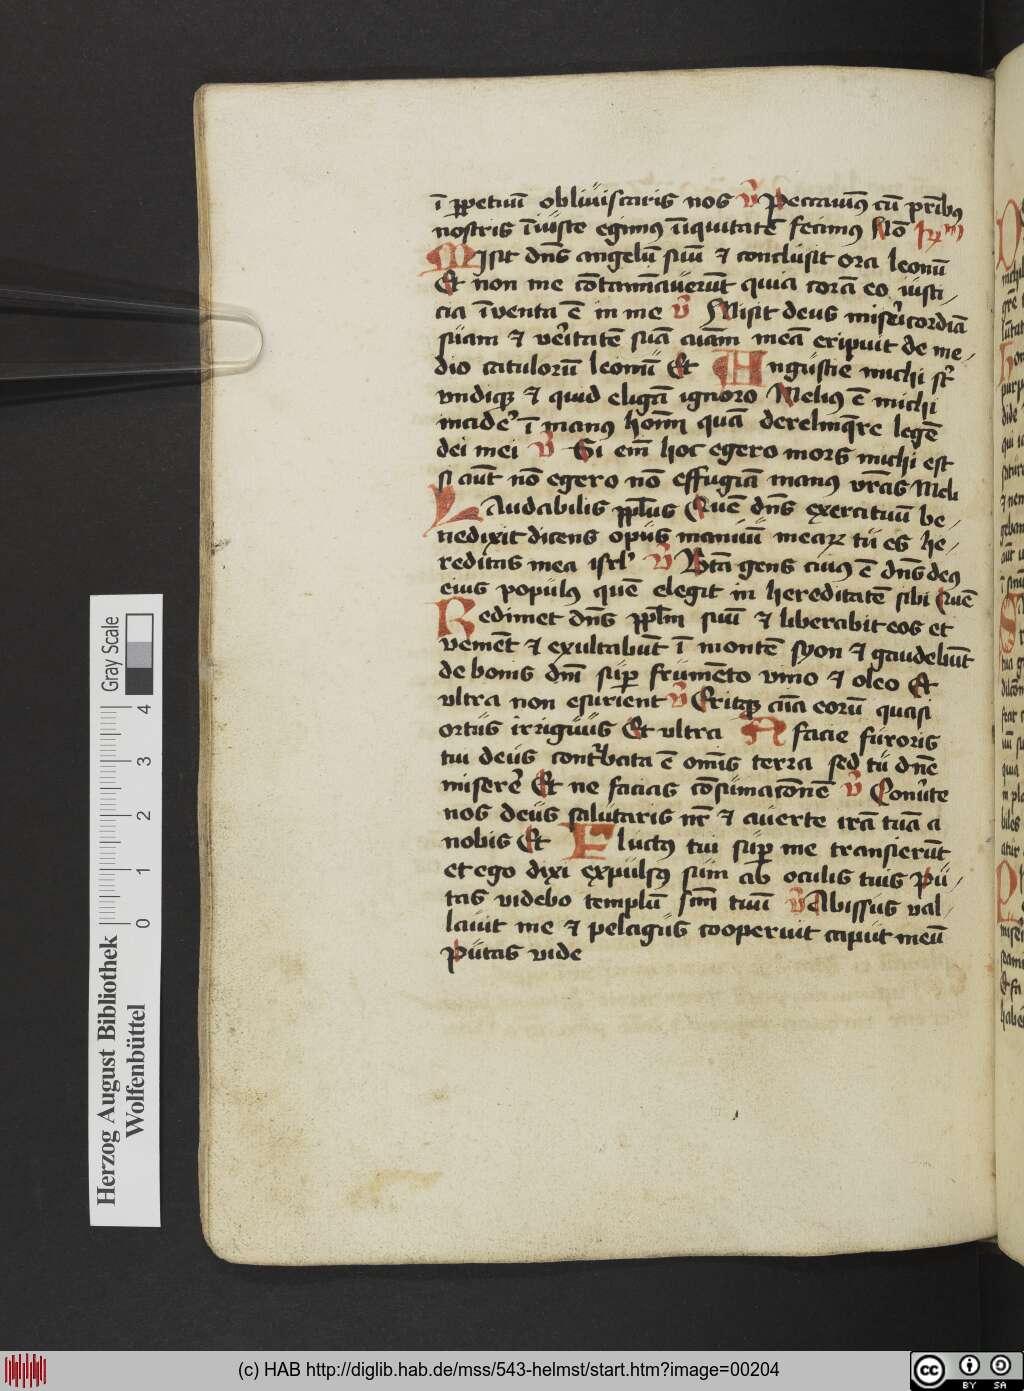 ī ꝑpetuū obliuiscaris nos v̄ Peccauimꝰ cū prībꝫ
nostris īiuste egimus īiquitatē fecimꝫ Nō
Misit dn̄s angelū suū ⁊ conclusit ora leonū
Et non me cōtaminauerūt quia corā eo iusti-
cia īuenta ē in me v̄ Misit deus misericordiā
suam ⁊ veritatē suā aīam meā eripuit de me-
dio catulorū leonū Et Angustie michi st̄
vndiqꝫ ⁊ quid eligā ignoro Melius ē michi
incide᷑ ī manus hoīm quā derelinq̄re legē
dei mei v̄ Si em̄ hoc egero mors michi est
si aūt nō egero nō effugiā manus vr̄as Meli
LAudabilis ppl̄us Quē dn̄s exercituū be-
nedixit dicens opus manuū mearꝫ tu es he-
reditas mea isrl̓ v̄ Btā gens cuius ē dn̄s deꝰ
eius populꝰ quē elegit in hereditatē sibi Quē
Redimet dn̄s ppl̄m suū ⁊ liberabit eos et
veniēt ⁊ exultabūt ī montē syon ⁊ gaudebūt
de bonis dn̄i suꝑ frumēto vino ⁊ oleo Et
vltra non esurient v̄ Eritqꝫ aīa eorū quasi
ortus irriguus Et vltra A facie furoris
tui deus contꝰbata ē omīs terra sed tu dn̄e
miserē Et ne facias cōsumacōnē v̄ Conūte
nos deus salutaris nr̄ ⁊ auerte irā tuā a
nobis Et Fluctꝰ tui suꝑ me transierūt
et ego dixi expulsꝰ sum ab oculis tuis Pu-
tas videbo templū scm̄ tuū v̄ Abissus val-
lauit me ⁊ pelagus cooperuit caput meū
Putas vide
Gray Scale
0 1 2 3 4
Herzog August Bibliothek
Wolfenbüttel
(c) HAB http://diglib.hab.de/mss/543-helmst/start.htm?image=00204
cc BY SA